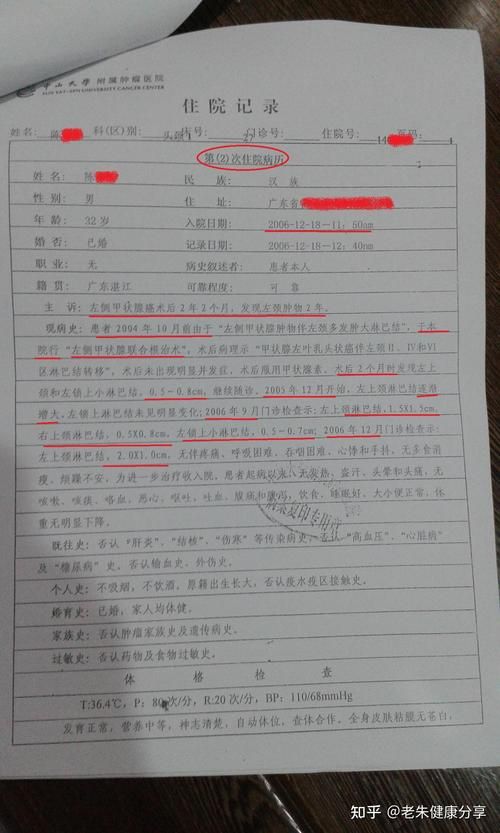 中山大学 附属肿瘤医院
SUN YAT-SEN UNIVERSITY CANCER CENTER
住院记录
姓名: 陈 科(区)别: 头颈1 床号: 27 门诊号: 住院号: 14 页码: 1
第(2)次住院病历
姓 名: 陈 民 族: 汉 族
性 别: 男 住 址: 广东省
年 龄: 32岁 入院日期: 2006-12-18-11: 50am
婚 否: 已婚 记录日期: 2006-12-18-12: 40nm
职 业: 无 病史叙述者: 患者本人
籍 贯: 广东湛江 可靠程度: 可 靠
主 诉: 左侧甲状腺癌术后2年2个月, 发现左颈肿物2年。
现病史: 患者2004年10月前由于“左侧甲状腺肿物伴左颈多发肿大淋巴结”, 于本
院行“左侧甲状腺联合根治术”, 术后病理示“甲状腺左叶乳头状癌伴左颈II、IV和VI
区淋巴结转移”, 术后未出现明显并发症, 术后服用甲状腺素。术后2个月时发现左上
颈和左锁上小淋巴结, 0.5-0.8cm, 继续随诊, 2005年12月开始, 左上颈淋巴结逐渐
增大, 左锁上淋巴结未见明显变化; 2006年9月门诊检查示: 左上颈淋巴结, 1.5X1.5cm,
右上颈淋巴结, 0.5X0.8cm, 左锁上小淋巴结, 0.5-0.7cm; 2006年12月门诊检查示:
左上颈淋巴结, 2.0X1.0cm, 无伴疼痛、呼吸困难、吞咽困难、心悸和手抖, 无多食消
瘦、烦躁不安, 为进一步治疗收入院, 患者起病以来, 无发热、盗汗、头晕和头痛, 无
咳嗽、咳痰、咯血、恶心、呕吐、吐血、腹痛和腹泻, 饮食、睡眠好, 大小便正常, 体
重无明显下降。
病案复印专用章
既往史: 否认“肝炎”、“结核”、“伤寒”等传染病史, 否认“高血压”、“心脏病”
及“糖尿病”史。否认输血史、外伤史。
个人史: 不吸烟, 不饮酒, 原籍出生长大, 否认疫水疫区接触史。
婚育史: 已婚, 家人均体健。
家族史: 否认肿瘤家族史及遗传病史。
过敏史: 否认药物及食物过敏史。
体 格 检 查
T:36.4℃, P: 80次/分, R:20次/分, BP: 110/68mmHg
发育正常, 营养中等, 神志清楚, 自动体位, 查体合作。全身皮肤粘膜无苍白,
知乎 @老朱健康分享